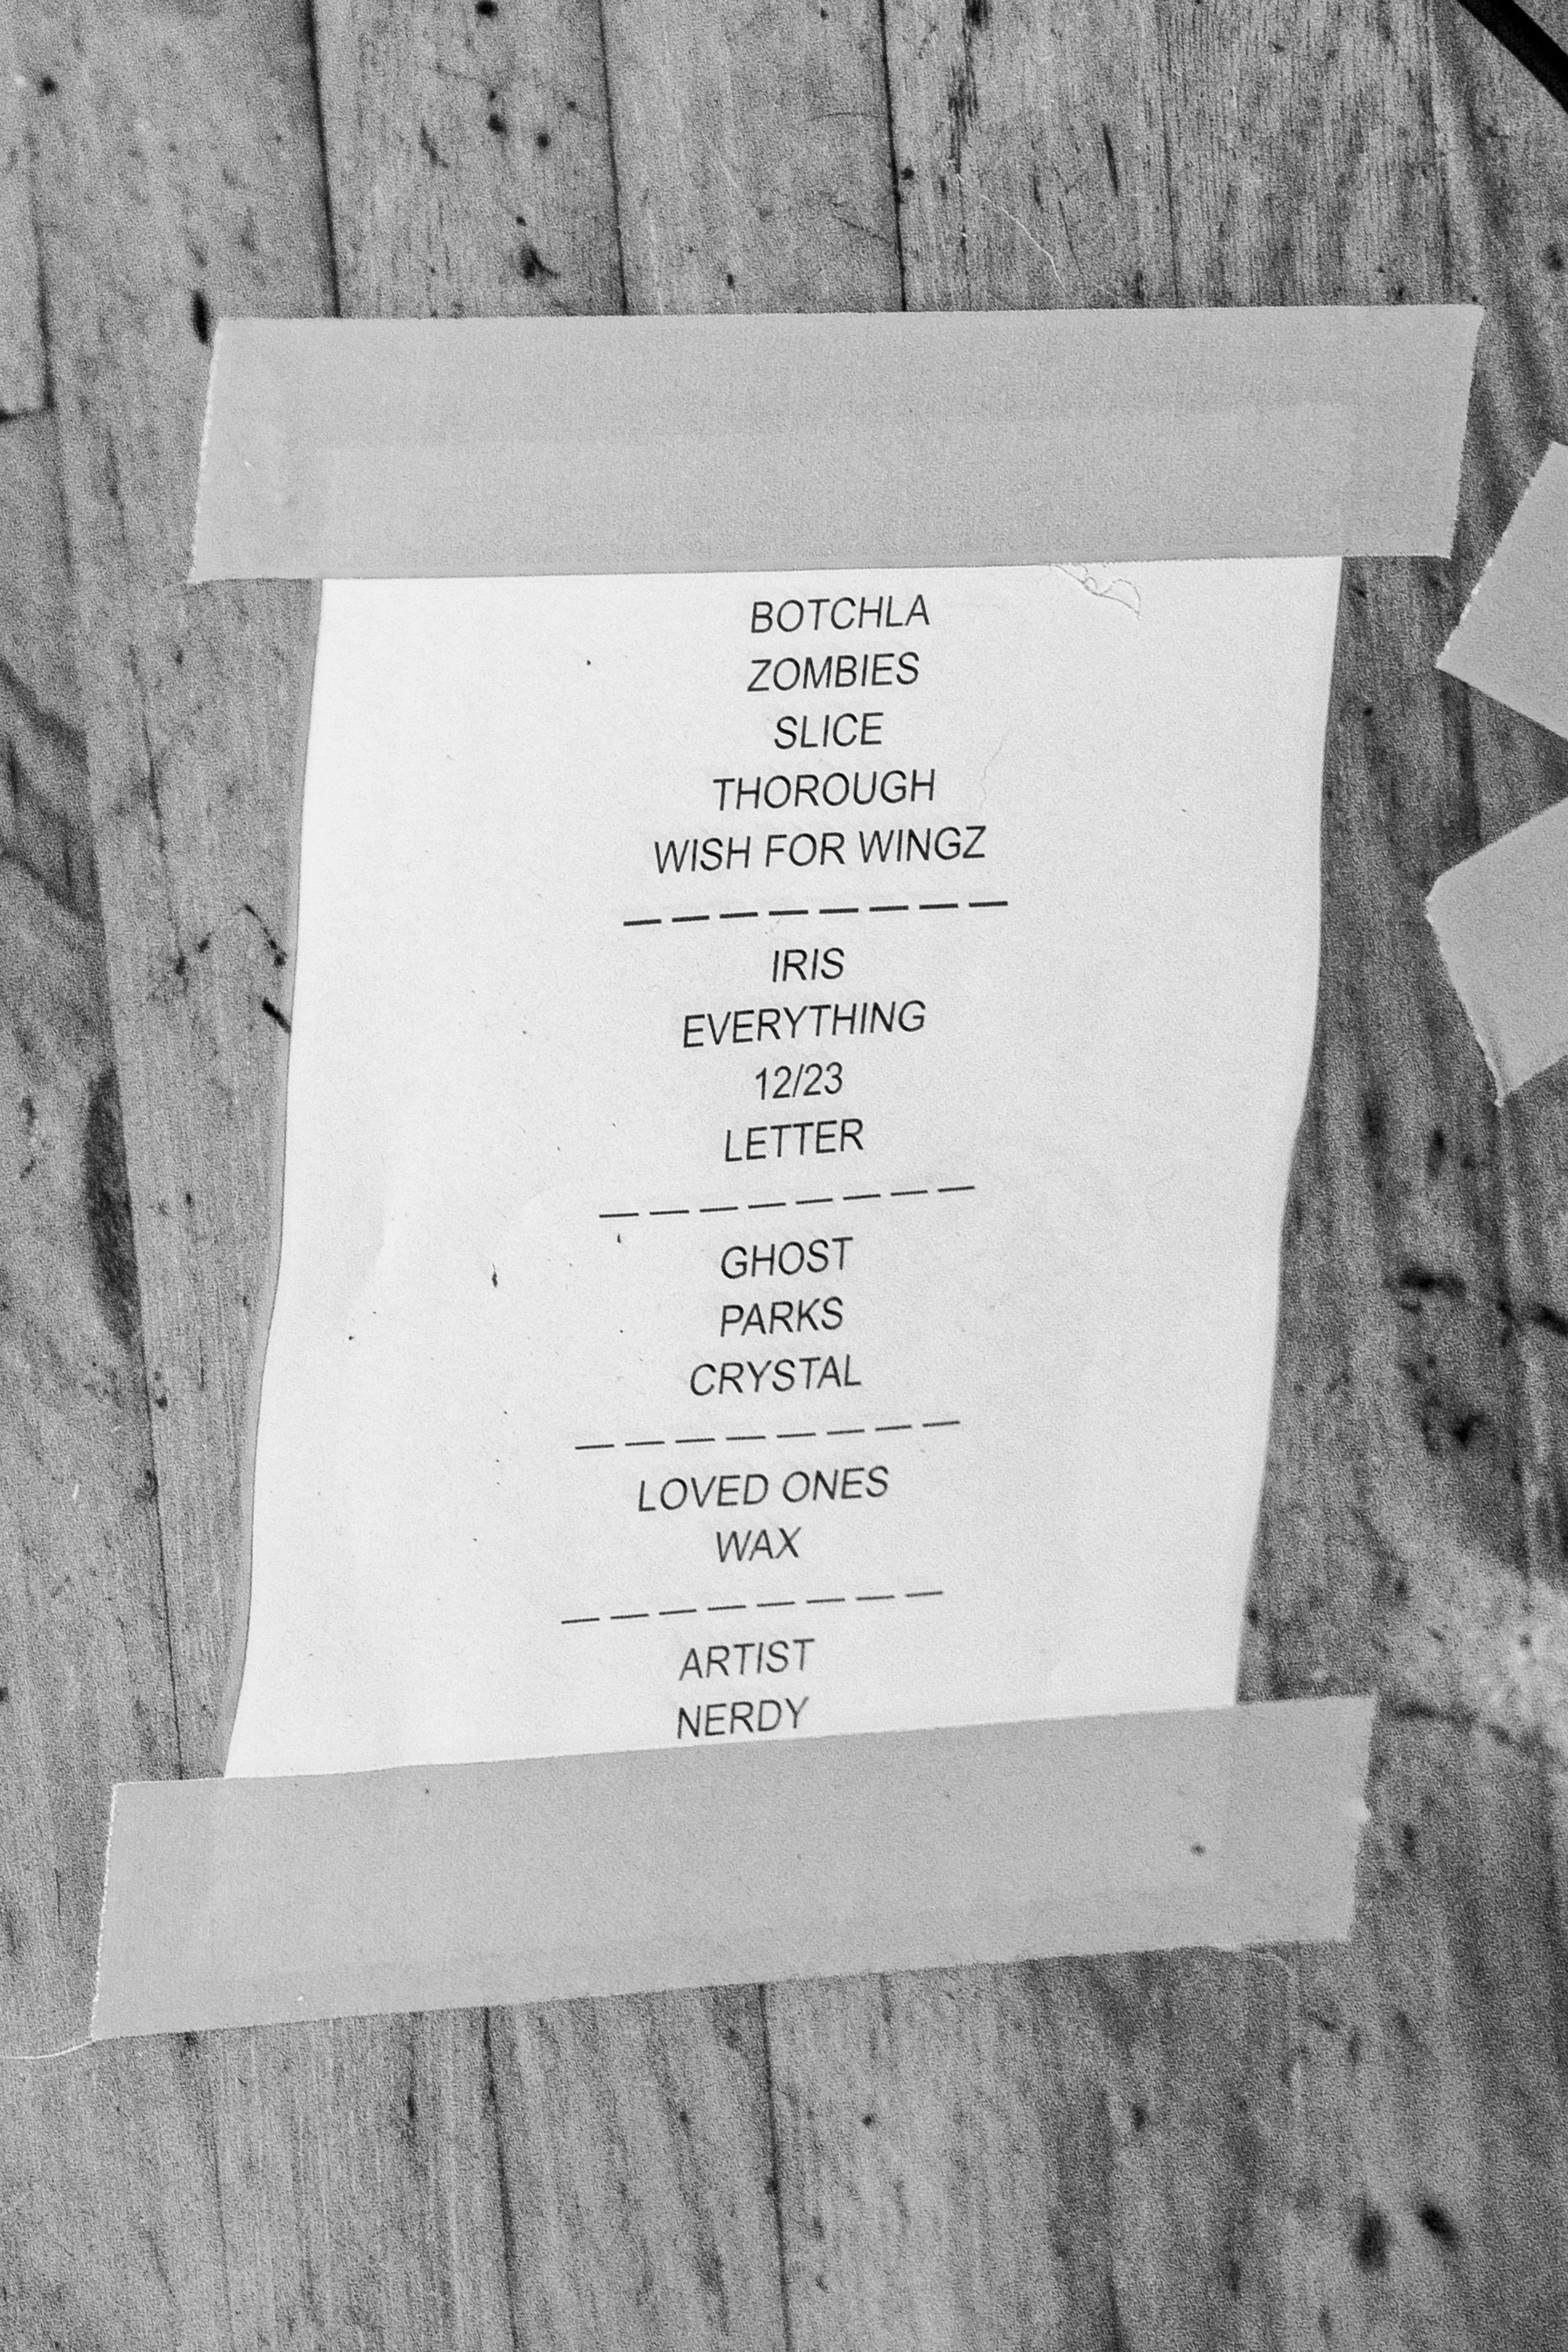 BOTCHLA
ZOMBIES
SLICE
THOROUGH
WISH FOR WINGZ
— — — — — — — —
IRIS
EVERYTHING
12/23
LETTER
— — — — — — — —
GHOST
PARKS
CRYSTAL
— — — — — — — —
LOVED ONES
WAX
— — — — — — — —
ARTIST
NERDY